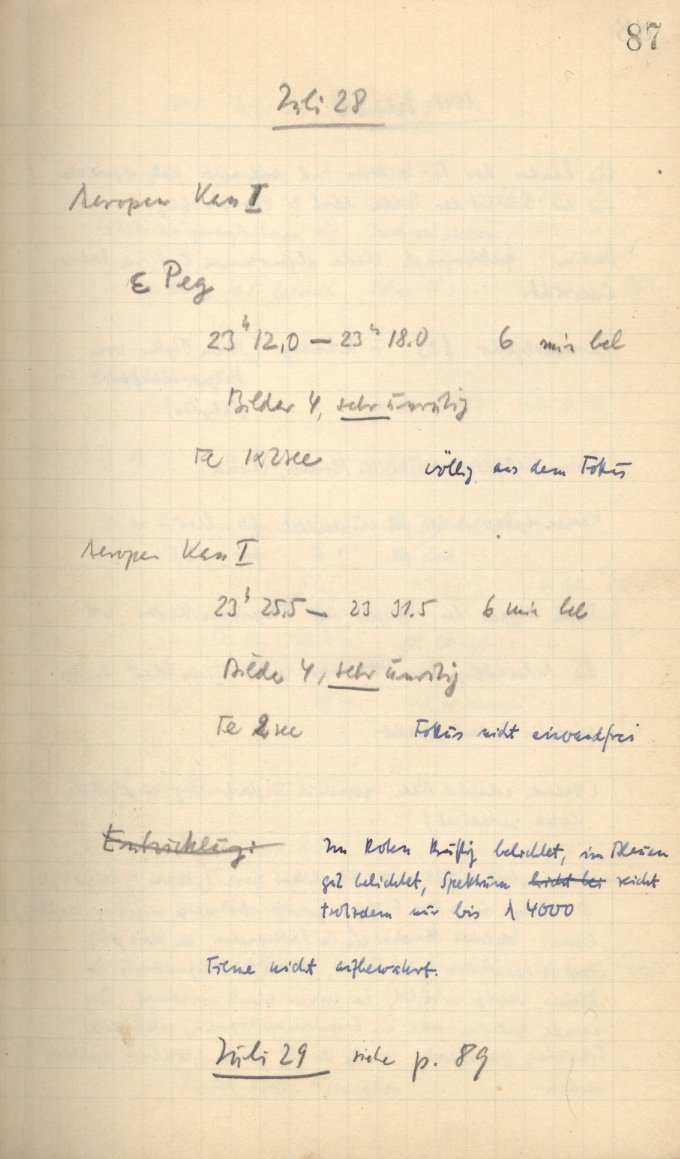 87
Juli 28
Aeropan Kass I
ε Peg
23ʰ 12,0 — 23ʰ 18.0 6 min bel
Bilder 4, sehr unruhig
Fe 1x2sec völlig aus dem Fokus
Aeropan Kass I
23ʰ 25.5 — 23 31.5 6 min bel
Bilder 4, sehr unruhig
Fe 2sec Fokus nicht einwandfrei
Entwicklung:
Im Roten kräftig belichtet, im Blauen
gut belichtet, Spektrum reicht
trotzdem nur bis λ 4000
Filme nicht aufbewahrt.
Juli 29 siehe p. 89